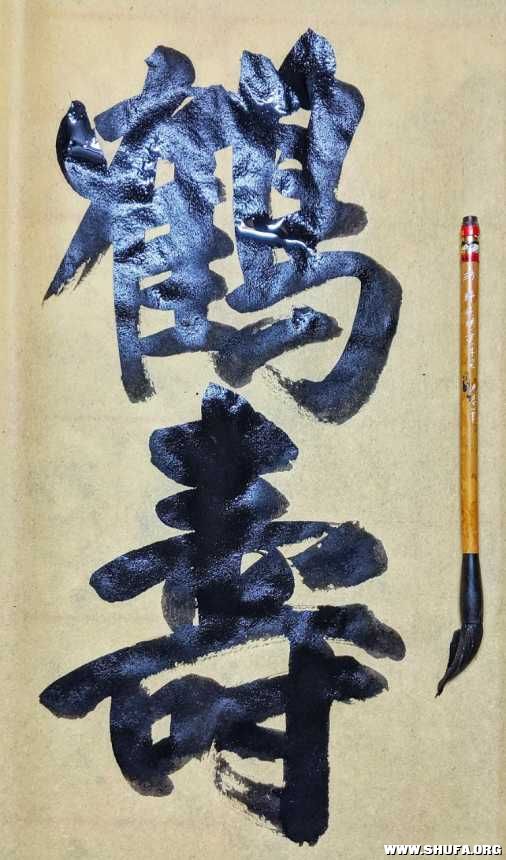 鶴
壽
WWW.SHUFA.ORG